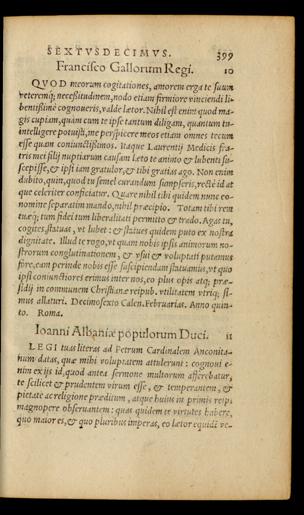 SEXTVSDECIMVS. 399
Francisco Gallorum Regi. 10
QVOD meorum cogitationes, amorem erga te suum
veteremq; necessitudinem, nodo etiam firmiore vinciendi li-
bentissimè cognoueris, valde lætor. Nihil est enim quod ma-
gis cupiam, quàm cum te ipse tantum diligam, quantum tu
intelligere potuisti, me perspicere meos etiam omnes tecum
esse quàm coniunctissimos. Itaque Laurentij Medicis fra-
tris mei filij nuptiarum causam læto te animo & lubenti su-
scepisse, & ipsi iam gratulor, & tibi gratias ago. Non enim
dubito, quin, quod tu semel curandum sumpseris, rectè id at
que celeriter conficiatur. Quare nihil tibi quidem nunc eo
nomine separatim mando, nihil præcipio. Totam tibi rem
tuæq; tum fidei tum liberalitati permitto & trado. Agas tu,
cogites, statuas, vt lubet: & statues quidem puto ex nostra
dignitate. Illud te rogo, vt quam nobis ipsis animorum no-
strorum conglutinationem, & vsui & voluptati putamus
fore, eam perinde nobis esse suscipiendam statuamus, vt quo
ipsi coniunctiores erimus inter nos, eo plus opis atq; præ-
sidij in communem Christianæ reipub. vtilitatem vtriq; si-
mus allaturi. Decimosexto Calen. Februarias. Anno quin-
to. Roma.
Ioanni Albaniæ populorum Duci. 11
LEGI tuas literas ad Petrum Cardinalem Anconita-
num datas, quæ mihi voluptatem attulerunt: cognoui e-
nim ex ijs id, quod antea sermone multorum afferebatur,
te scilicet & prudentem virum esse, & temperantem, &
pietate ac religione præditum, atque huius in primis reip;
magnopere obseruantem: quas quidem te virtutes habere,
quo maior es, & quo pluribus imperas, eo lætor equidē ve-